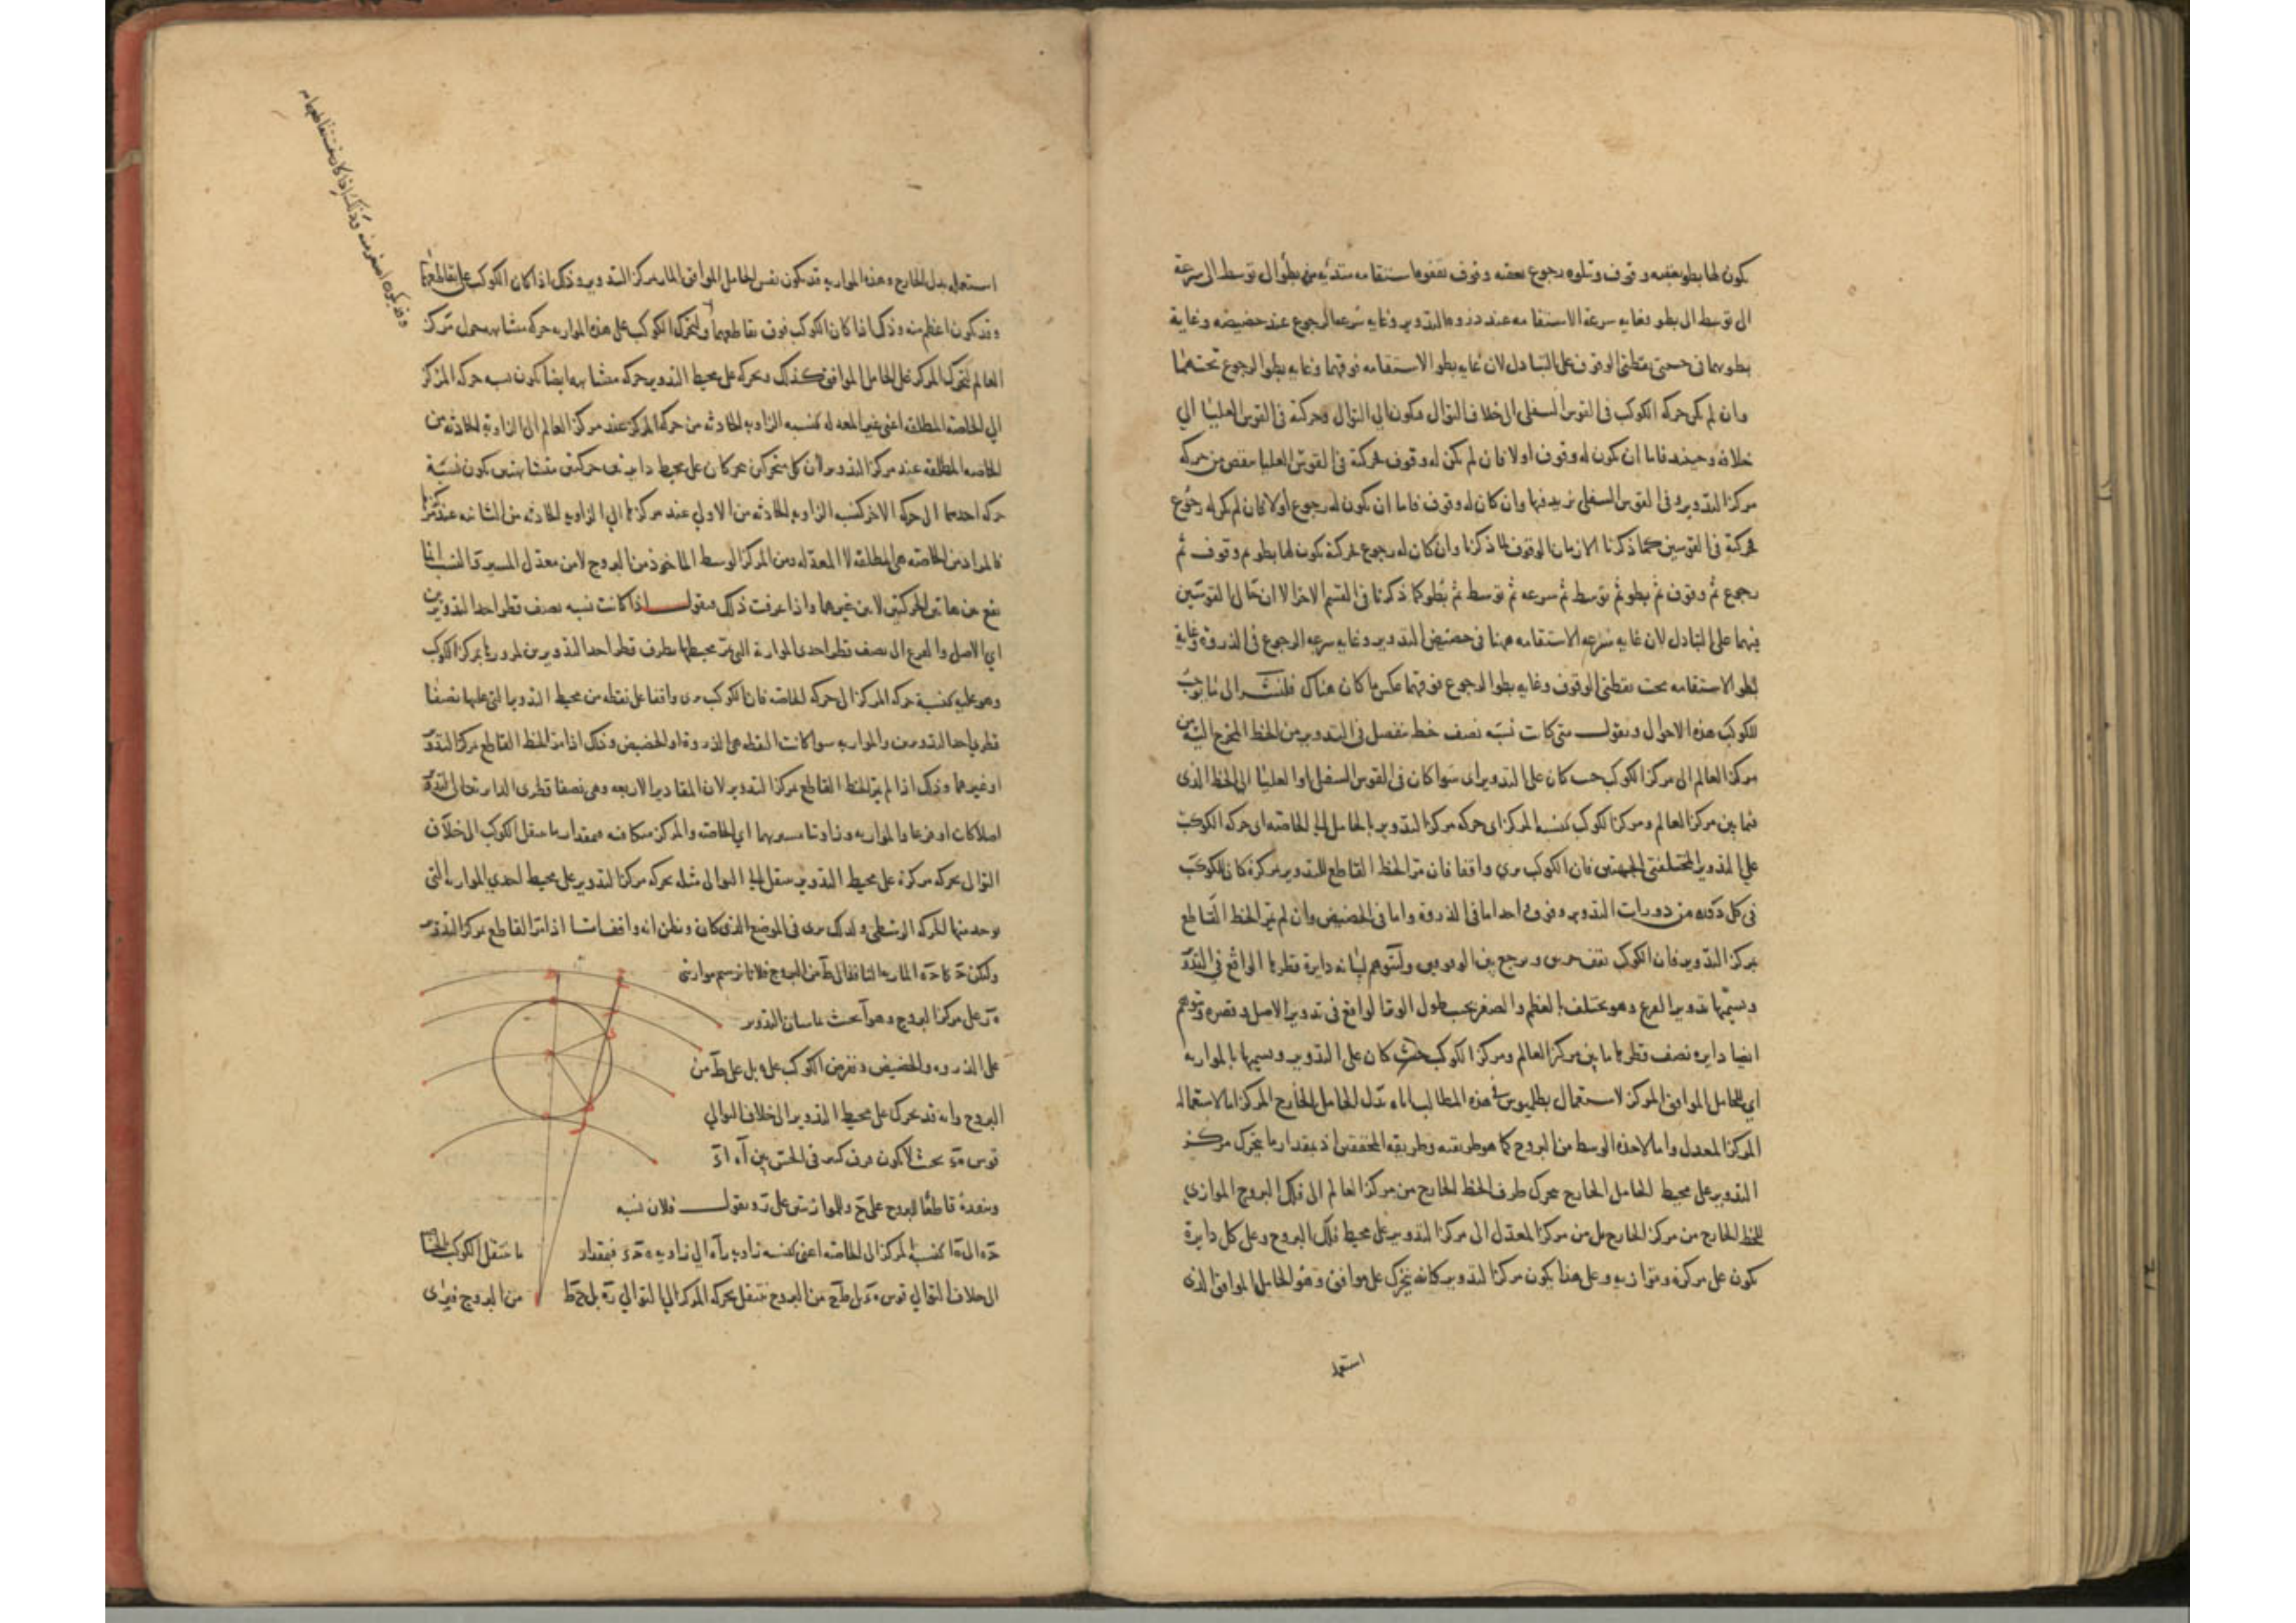 يكون لها بطو يعقبه وقوف وتتلوه رجوع يعقبه وقوف يقفوها ستقامه مبتدئه من بطو الى توسط الى سرعة
الى توسط الى بطو وغايه سرعة الاستقامه عند ذروه التدوير وغايه سرعه الرجوع عند حضيضه وغاية
بطوهما فى جنبتى نقطتى الوقوف على التبادل لان غايه بطو الاستقامه فوقهما وغايه بطو الرجوع تحتهما
وان لم يكن حركه الكوكب فى القوس السفلى الى خلاف التوالى فيكون الى التوالى وحركته فى القوس العليا الى
خلافه وحينئذ فاما ان يكون له وقوف اولا فان لم يكن له وقوف فحركته فى القوس العليا ينقص من حركه
مركز التدوير وفى القوس السفلى يزيد فيها وان كان له وقوف فاما ان يكون له رجوع اولا فان لم يكن له رجوع
فحركته فى القوسين كما ذكرنا الا زمان الوقوف لما ذكرنا وان كان له رجوع فحركته يكون لها بطو ثم وقوف ثم
رجوع ثم وقوف ثم بطو ثم توسط ثم سرعه ثم توسط ثم بطو كما ذكرنا فى القسم الاخر الا ان حال القوسين
فيهما على التبادل لان غايه سرعه الاستقامه ههنا فى حضيض التدوير وغايه سرعه الرجوع فى الذروة وغاية
بطو الاستقامه تحت نقطتى الوقوف وغايه بطو الرجوع فوقهما عكس ما كان هناك فلنشر الى ما يوجب
للكوكب هذه الاحوال ونقول متى كانت نسبه نصف خط ينفصل فى التدوير من الخط المخرج اليه من
مركز العالم الى مركز الكوكب حيث كان على التدوير اى سوا كان فى القوس السفلى او العليا الى الخط الذى
فيما بين مركز العالم ومركز الكوكب كنسبه المركز اى حركه مركز التدوير بالحامل الى الخاصه اى حركه الكوكب
على التدوير المختلفتى الجهتين فان الكوكب يرى واقفا فان مر الخط القاطع للتدوير بمركزه كان للكوكب
فى كل دوره من دورات التدوير وقوف واحد اما فى الذروة واما فى الحضيض وان لم يمر الخط القاطع
بمركز التدوير فان الكوكب يقف مرتين ويرجع بين الوقوفين ولنتوهم لبيانه دايرة قطرها الواقع فى التدوير
ونسميها تدوير الفرع وهو يختلف بالعظم والصغر بحسب طول الوتر الواقع فى تدوير الاصل وقصره ونتوهم
ايضا دايره نصف قطرها ما بين مركز العالم ومركز الكوكب حيث كان على التدوير ونسميها بالمواريه
اى للحامل الموافق المركز لاستعمال بطلميوس فى هذه المطالب اياه بدل الحامل الخارج المركز اما لاستعماله
المركز المعدل واما لاخذه الوسط من البروج كما هو طريقته وطريقه المحققين اذ بمقدار ما يتحرك مركز
التدوير على محيط الحامل الخارج يتحرك طرف الخط الخارج من مركز العالم الى فلك البروج الموازى
للخط الخارج من مركز الخارج بل من مركز المعدل الى مركز التدوير على محيط فلك البروج وعلى كل دايرة
يكون على مركزه ومتوازيه وعلى هذا يكون مركز التدوير كانه يتحرك على موافق وهو الحامل الموافق الذى
استعمله
استعمله بدل الخارج وهذه المواريه قد يكون نفس الحامل الموافق المار بمركز التدوير وذلك اذا كان الكوكب على تقاطعهما
وقد يكون اعظم منه وذلك اذا كان الكوكب فوق تقاطعهما وليتحرك الكوكب على هذه المواريه حركه متشابهه حول مركز
وقد يكون اصغر منه وذلك اذا كان تحت تقاطعهما
العالم كتحرك المركز على الحامل الموافق كذلك وتحركه على محيط التدوير حركه متشابهه ايضا يكون نسبه حركه المركز
الى الخاصه المطلقه اعنى غير المعدله كنسبه الزاويه الحادثه من حركه المركز عند مركز العالم الى الزاويه الحادثه من
الخاصه المطلقه عند مركز التدوير لان كل متحركين يتحركان على محيط دايرتين حركتين متشابهتين يكون نسبة
حركه احدهما الى حركه الاخر كنسبه الزاويه الحادثه من الاولى عند مركزها الى الزاويه الحادثه من الثانيه عند مركزها
فالمراد من الخاصه هى المطلقه لا المعدله ومن المركز الوسط الماخوذ من البروج لا من معدل المسير والنسب انما
يقع من هاتين الحركتين لا من غيرهما واذا عرفت ذلك فنقول اذا كانت نسبه نصف قطر احد التدويرين
اى الاصل والفرع الى نصف قطر احدى المواريه التى يمر محيطها بطرف قطر احد التدويرين لمرورها بمركز الكوكب
وهو عليه كنسبة حركه المركز الى حركه الخاصه فان الكوكب يرى واقفا على نقطه من محيط التدوير التى عليها نصفا
قطرى احد التدويرين والمواريه سوا كانت النقطه هى الذروة او الحضيض وذلك اذا مر الخط القاطع بمركز التدوير
او غيرهما وذلك اذا لم يمر الخط القاطع بمركز التدوير لان المقادير الاربعه وهى نصفا قطرى الدايرتين اى التدوير
اصلا كان او فرعا والمواريه وزاويتا مسيريهما اى الخاصه والمركز متكافيه فبمقدار ما ينتقل الكوكب الى خلاف
التوالى بحركه مركزه على محيط التدوير ينتقل الى التوالى مثله بحركه مركز التدوير على محيط احدى المواريه التى
يوجد منها الحركه الوسطى ولذلك يرى فى الموضع الذى كان ويظن انه واقف اما اذا مر القاطع بمركز التدوير
وليكن المار بها الى من البروج فلانا نرسم موازيتى
على مركز البروج وهو ا بحيث يماسان التدوير
على الذروه والحضيض ونفرض الكوكب على ه بل على ط من
البروج وانه قد تحرك على محيط التدوير الى خلاف التوالى
قوس بحيث لا يكون فرق كثير فى الحس بين
وننفذه قاطعا للبروج على ح وللموازيتين على ر ونقول فلان نسبه
كنسبه المركز الى الخاصه اعنى كنسبه زاويه الى زاويه فبمقدار ما ينتقل الكوكب
الى خلاف التوالى قوس من البروج ينتقل بحركه المركز الى التوالى من البروج فيرى